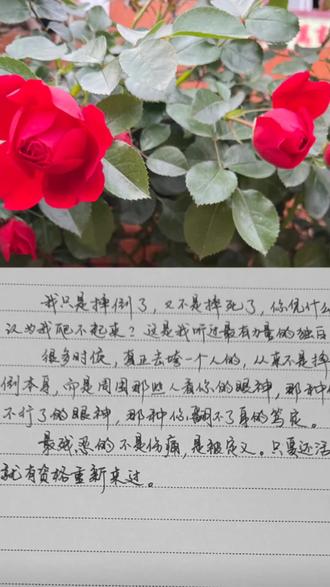 我只是摔倒了，又不是摔死了，你凭什么
认为我爬不起来？这是我听过最有力量的独白
很多时候，真正击垮一个人的，从来不是摔
倒本身，而是周围那些人看你的眼神，那种
不行了的眼神，那种你翻不了身的笃定。
最残忍的不是伤痛，是被定义。只要还活
就有资格重新来过。